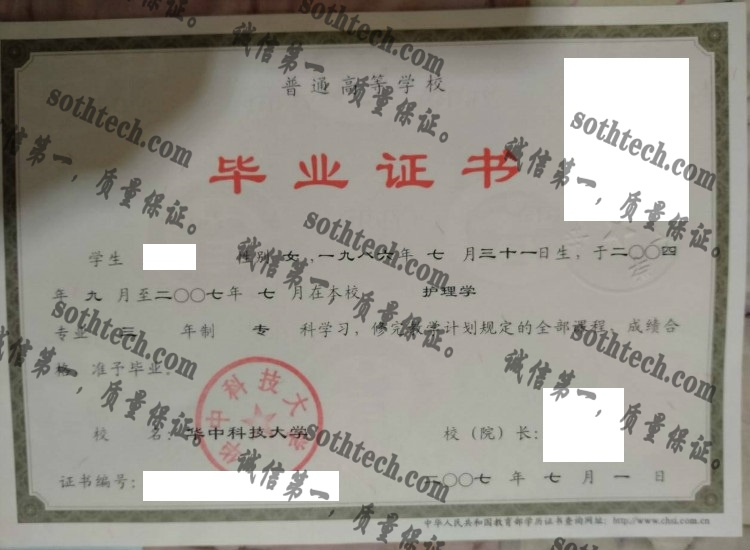 普通高等学校
毕业证书
学生 性别 女 ,一九八六年 七 月三十一日生，于二〇〇四
年 九 月至二〇〇七年 七 月在本校 护理学
专业 三 年制 专 科学习，修完教学计划规定的全部课程，成绩合
格，准予毕业。
华中科技大学
校 名：华中科技大学 校（院）长：
证书编号： 二〇〇七 年 七 月 一 日
中华人民共和国教育部学历证书查询网址：http://www.chsi.com.cn
sothtech.com
诚信第一，质量保证。
sothtech.com
诚信第一，质量保证。
sothtech.com
诚信第一，质量保证。
sothtech.com
诚信第一，质量保证。
sothtech.com
诚信第一，质量保证。
sothtech.com
诚信第一，质量保证。
sothtech.com
诚信第一，质量保证。
sothtech.com
sothtech.com